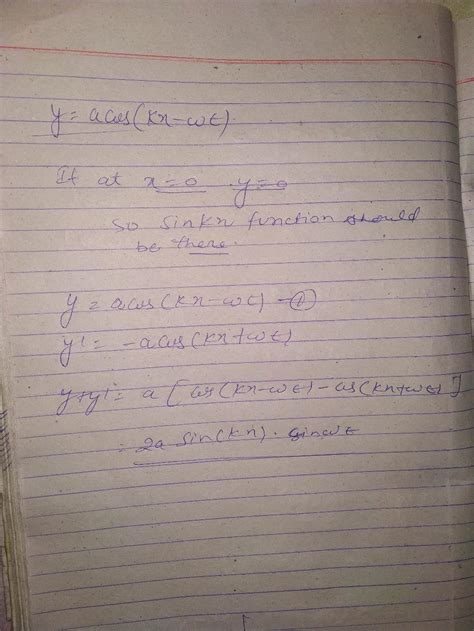 y = a cos(kx-ωt).
If at x=0 y=0
so sinkx function should
be there.
y = a cos(kx-ωt) - ①
y' = -a cos(kx+ωt)
y+y' = a [cos(kx-ωt) - cos(kx+ωt)]
= 2a sin(kx). sinωt